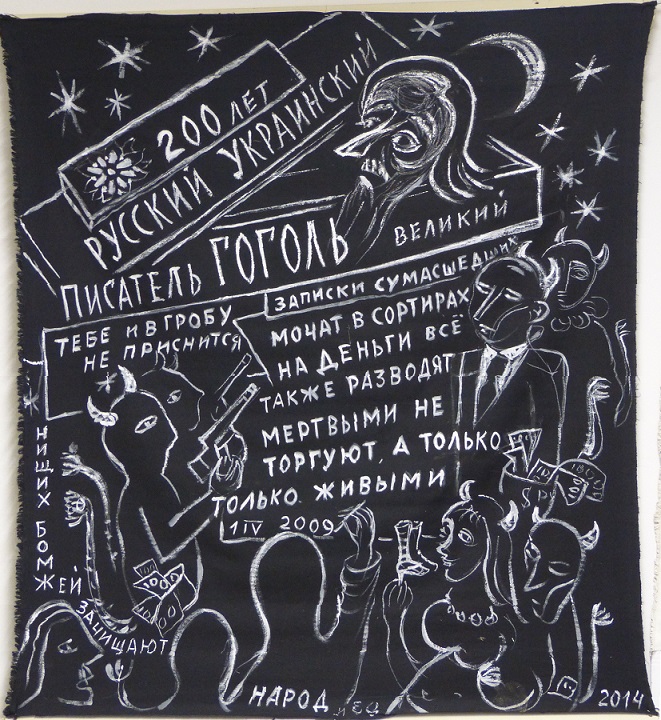 200 ЛЕТ
РУССКИЙ УКРАИНСКИЙ
ПИСАТЕЛЬ ГОГОЛЬ
ВЕЛИКИЙ
ЗАПИСКИ СУМАСШЕДШИХ
ТЕБЕ И В ГРОБУ
НЕ ПРИСНИТСЯ
МОЧАТ В СОРТИРАХ
НА ДЕНЬГИ ВСЁ
ТАКЖЕ РАЗВОДЯТ
МЕРТВЫМИ НЕ
ТОРГУЮТ, А ТОЛЬКО
ТОЛЬКО ЖИВЫМИ
1 IV 2009
НИЩИХ БОМЖЕЙ
ЗАЧИЩАЮТ
100
1000
НАРОД
2014